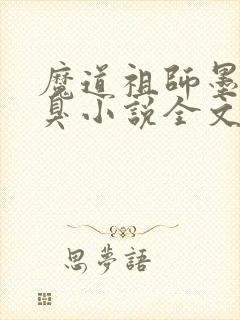 魔道祖師墨
臭小說全文
思夢語